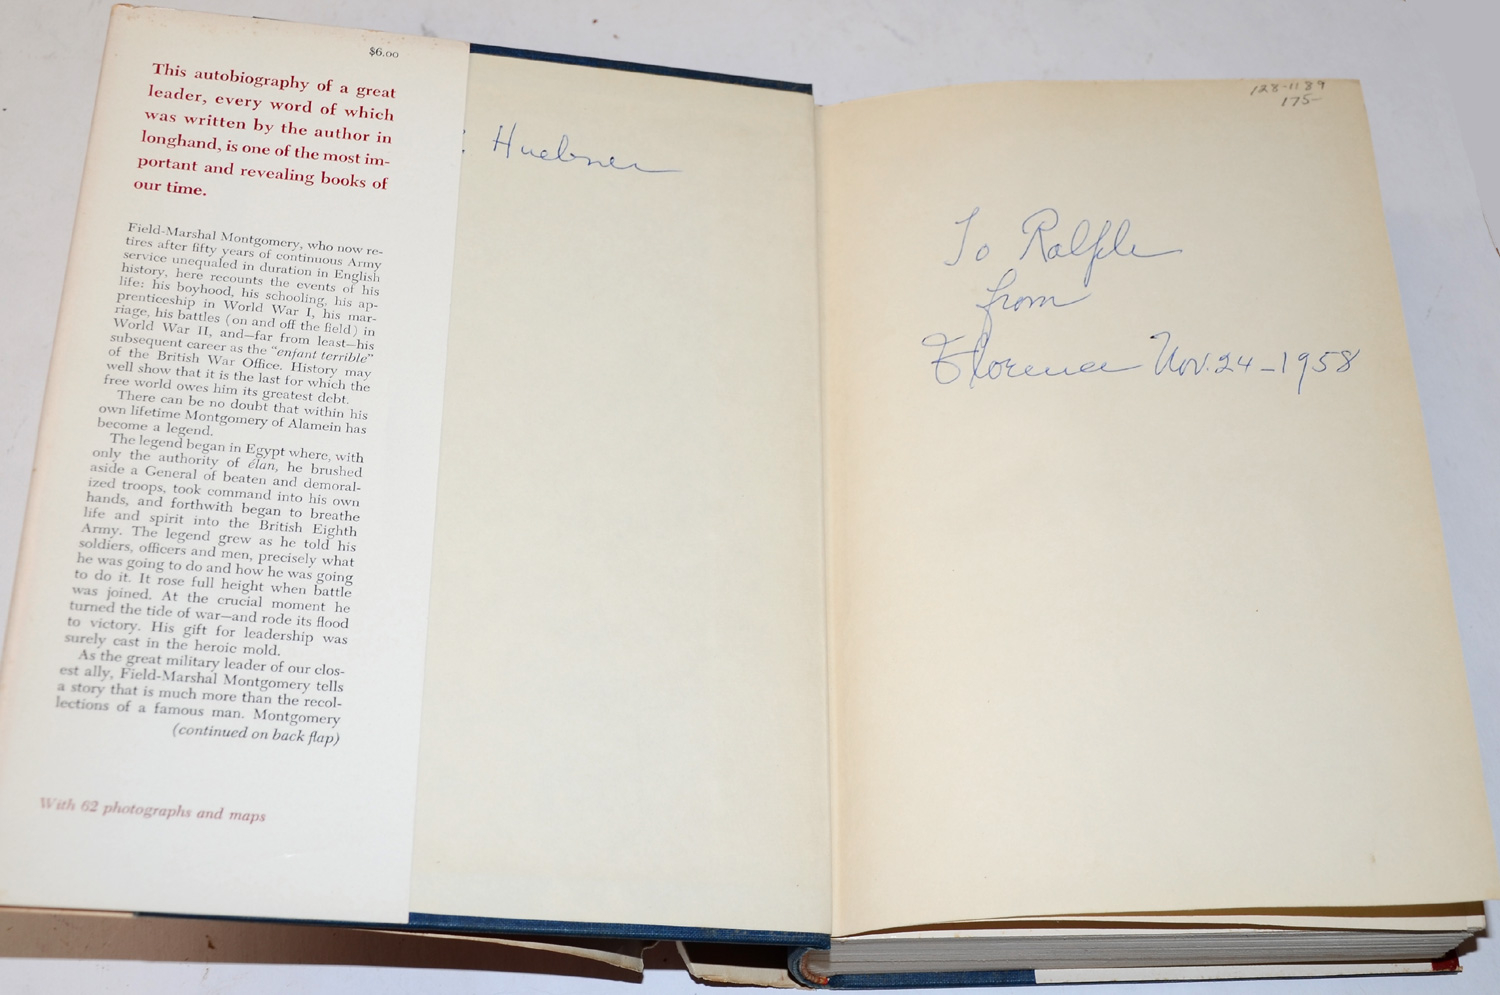 $6.00
This autobiography of a great
leader, every word of which
was written by the author in
longhand, is one of the most im-
portant and revealing books of
our time.
Field-Marshal Montgomery, who now re-
tires after fifty years of continuous Army
service unequaled in duration in English
history, here recounts the events of his
life: his boyhood, his schooling, his ap-
prenticeship in World War I, his mar-
riage, his battles (on and off the field) in
World War II, and—far from least—his
subsequent career as the "enfant terrible"
of the British War Office. History may
well show that it is the last for which the
free world owes him its greatest debt.
There can be no doubt that within his
own lifetime Montgomery of Alamein has
become a legend.
The legend began in Egypt where, with
only the authority of élan, he brushed
aside a General of beaten and demoral-
ized troops, took command into his own
hands, and forthwith began to breathe
life and spirit into the British Eighth
Army. The legend grew as he told his
soldiers, officers and men, precisely what
he was going to do and how he was going
to do it. It rose full height when battle
was joined. At the crucial moment he
turned the tide of war—and rode its flood
to victory. His gift for leadership was
surely cast in the heroic mold.
As the great military leader of our clos-
est ally, Field-Marshal Montgomery tells
a story that is much more than the recol-
lections of a famous man. Montgomery
(continued on back flap)
With 62 photographs and maps
Huebner
128-1189
175-
To Ralph
from
Florence Nov. 24-1958